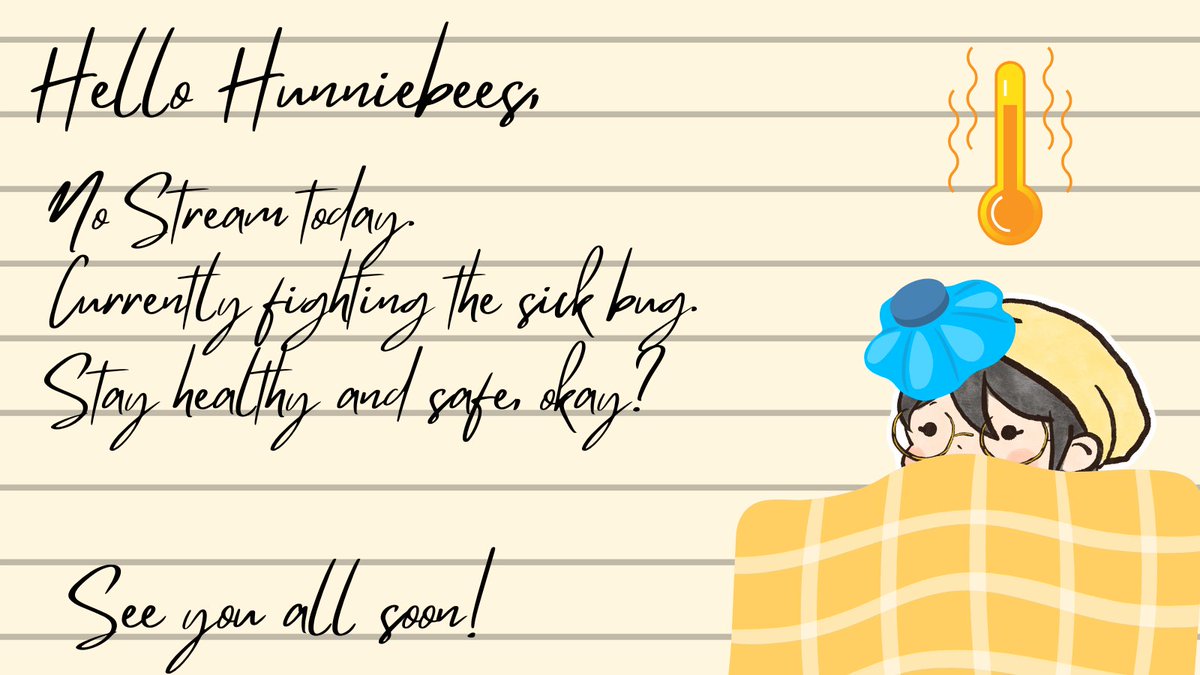 Hello Hunniebees,
No Stream today.
Currently fighting the sick bug.
Stay healthy and safe, okay?
See you all soon!